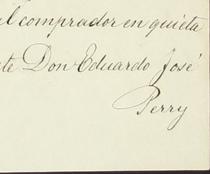 el comprador en quieta
te Don Eduardo José
Perry